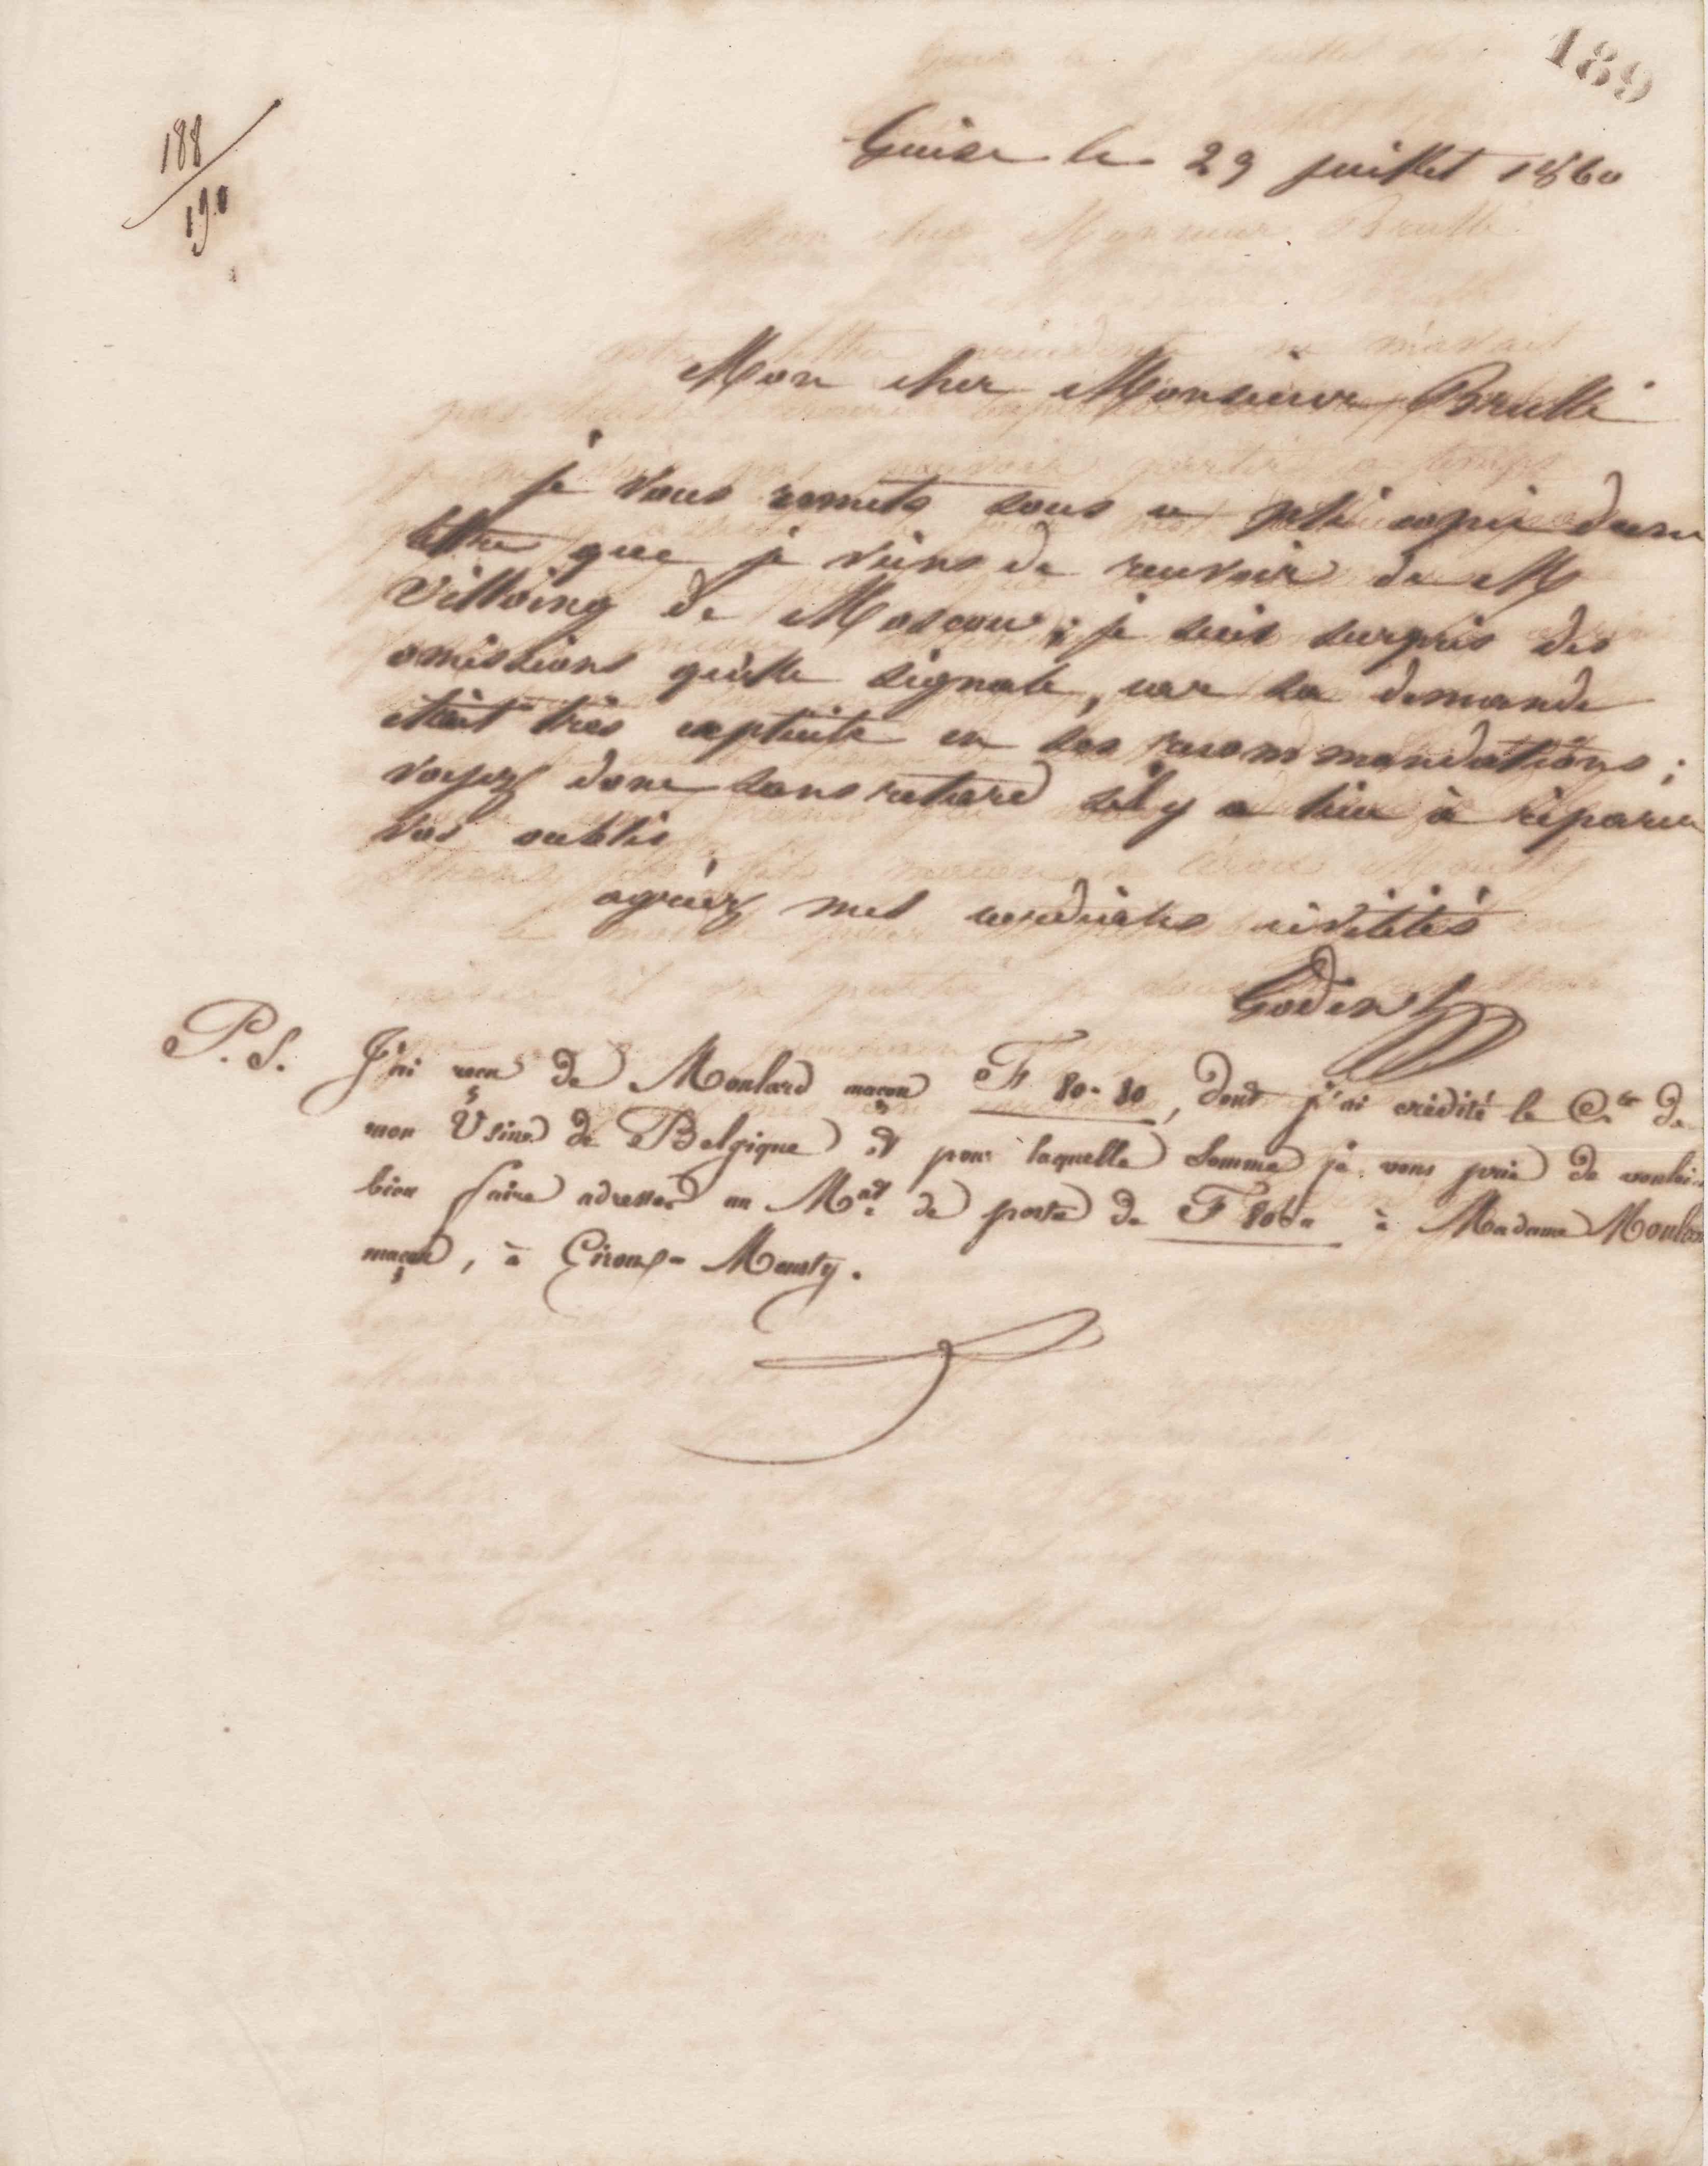 189
188
190
Guise le 29 juillet 1860
Mon cher Monsieur Brullé
je vous remets sous ce pli copie d'une
lettre que je viens de recevoir de M
Villoing de Moscou ; je suis surpris des
omissions qu'elle signale, car sa demande
était très explicite en ses recommandations ;
voyez donc sans retard s'il y a lieu à réparer
vos oublis
agréez mes cordiales civilités
Godin
P.S. J'ai reçu de Moulard maçon F 80-80, dont j'ai crédité le Cte de
mon Usine de Belgique et pour laquelle somme je vous prie de vouloir
bien faire adresser un Mat de poste de F à Madame Moulard
maçon, à Céroux-Mousty.